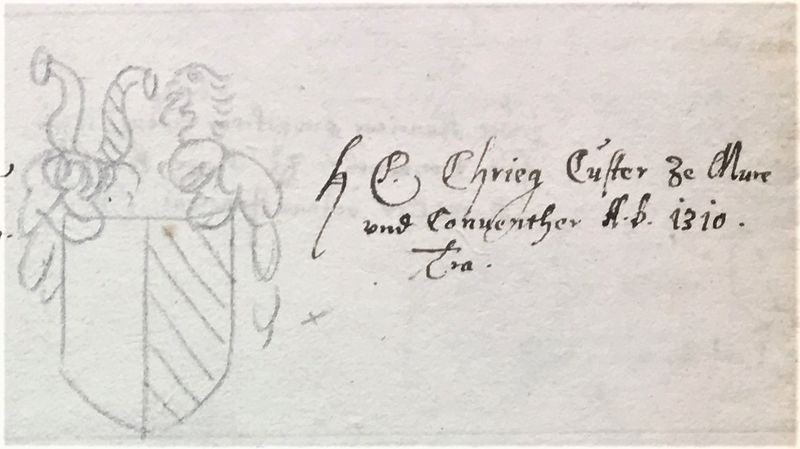 H C. Chrieg Cuͦster ze Mure
vnd Conuenther A. b. 1310.
Tra.